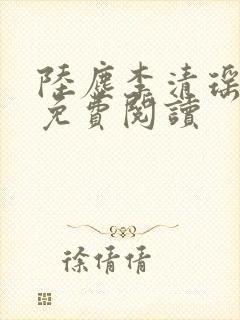 陸塵李清瑤
免費閱讀
徐倩倩